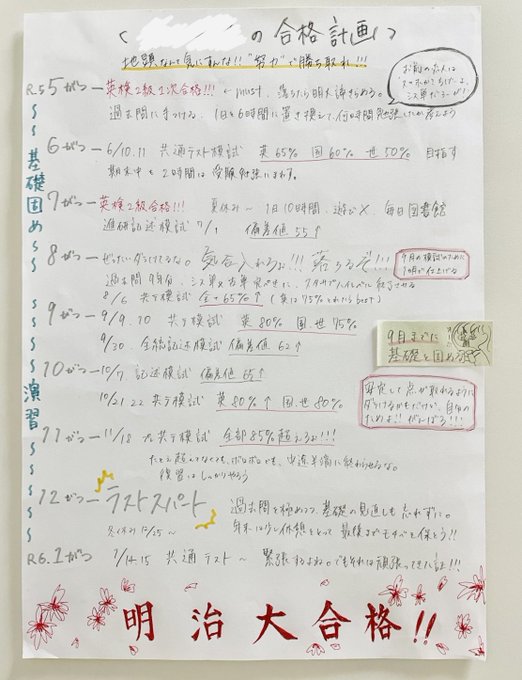 の合格計画
地頭なんて気にすんな!! "努力"で勝ち取れ!!!
R.5 5がつ ー 英検2級1次合格!!! ← must. 落ちたら明大諦めろ。
過去問に手つける、1日を6時間に置き換えて、何時間勉強したか考えよう
6がつ ー 6/10.11 共通テスト模試 英65% 国60% 世50% 目指す
期末中も2時間は受験勉強にまわす。
7がつ ー 英検2級合格!!! 夏休み〜 1日10時間、遊び×、毎日図書館
進研記述模試 7/ 偏差値55↑
8がつ ー ぜったいダラけるな。気合入れろよ!!! 落ちるぞ!!!
過去問9年分、シス単
8/6 共テ模試 全て65%↑ (英は75%とれたらbest)
9月の模試のために
9がつ ー 9/9.10 共テ模試 英80% 国.世75%
9/30. 全統記述模試 偏差値62↑
9月までに
基礎を固める
10がつ ー 10/7 記述模試 偏差値65↑
10/21.22 共テ模試 英80%↑ 国.世80%
安定して点が取れるように
ダラけるかもだけど、自分の
ためよ!! がんばろ!!!
11がつ ー 11/18 プレ共テ模試 全部85%超えろよ!!!
たとえ超えてなくても、ボロボロでも、中途半端に終わらせるな。
復習はしっかりやろう
12がつ ー ラストスパート
冬休み 12/25 〜
過去問を極めつつ、基礎の見直しも忘れずに。
年末は少し休憩をとって 最後までモチベを保とう!!
R6.1がつ 1/14.15 共通テスト 〜 緊張するよね。でもそれは頑張ってきた証!!!
基礎固め
演習
明治大合格!!